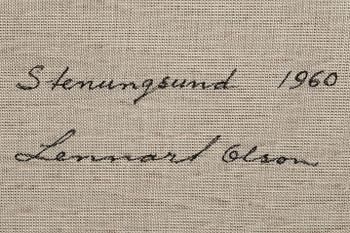 Stenungsund 1960
Lennart Olson